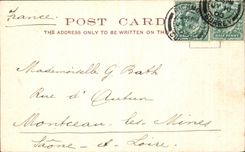 France
POST CARD
THE ADDRESS ONLY TO BE WRITTEN HERE
Mademoiselle G Bath
Rue d'Autun
Montceau les Mines
Saône-et-Loire